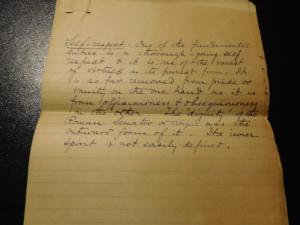 Self-respect: One of the fundamental
is a thorough-going self
respect & it is one of the rarest
of virtues in its purest form. It
is as far removed from pride or
vanity on the one hand as it is
from officiousness & obsequiousness
on the other. The dignity of the
Roman Senator was the
outward form of it. Its inner
spirit is not easily defined.